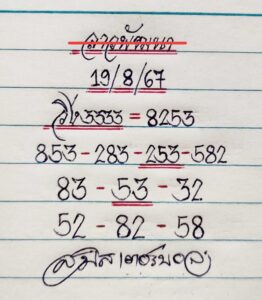 ลาวพัฒนา
19/8/67
วิ่ง3333 = 8253
853 - 283 - 253 - 582
83 - 53 - 32
52 - 82 - 58